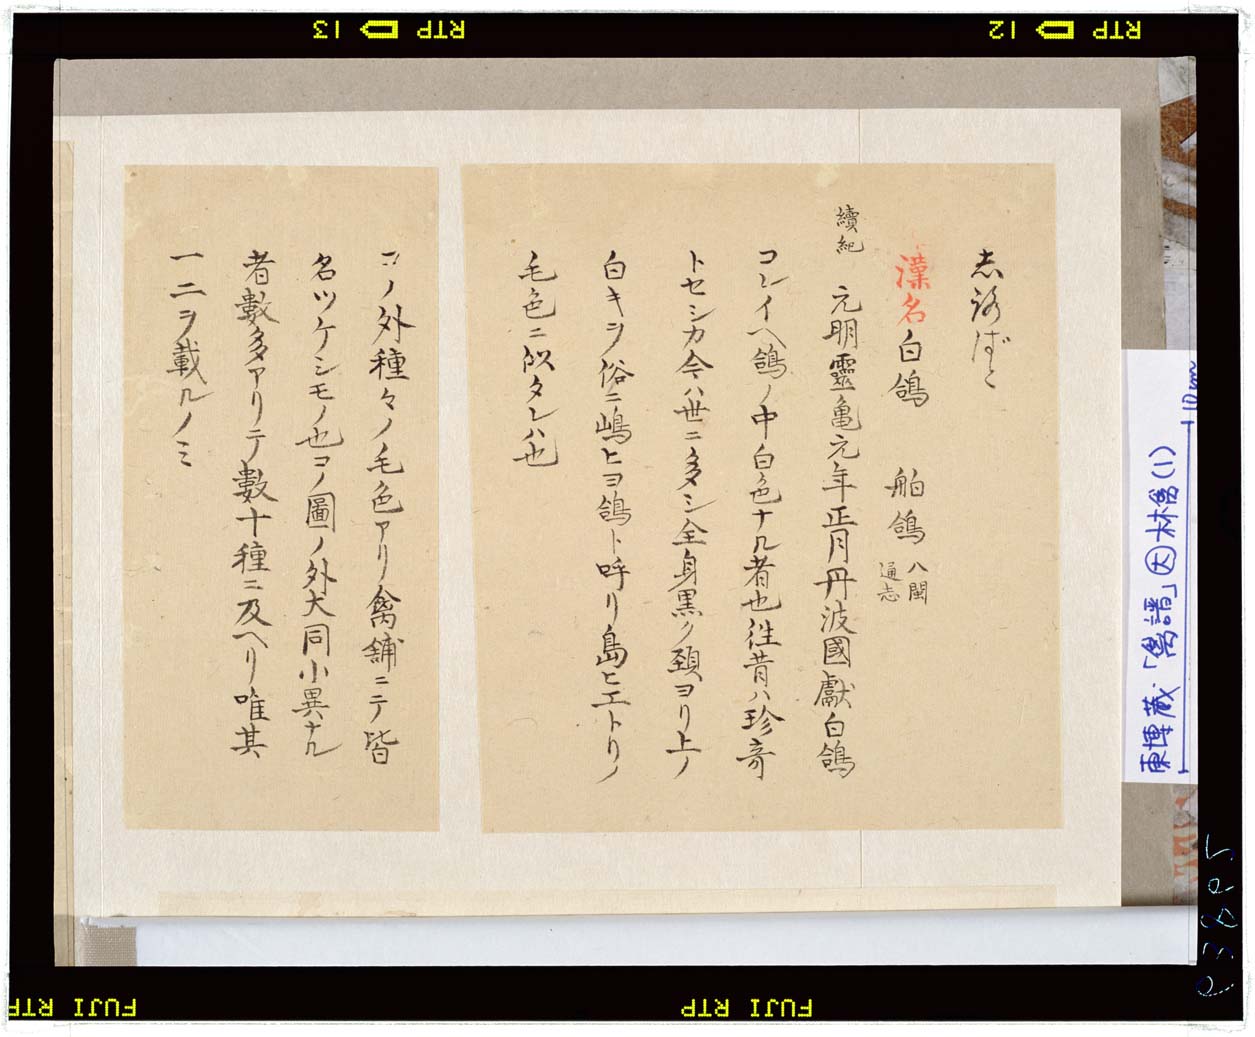 志ろばと
漢名 白鴿 舶鴿 八閩通志
續紀 元明靈亀元年正月丹波國獻白鴿
コレイヘ鴿ノ中白色ナル者也往昔ハ珍奇
トセシカ今ハ世ニ多シ全身黒ク頚ヨリ上ノ
白キヲ俗ニ嶋ヒヨ鴿ト呼リ島ヒエトリノ
毛色ニ似タレハ也
コノ外種々ノ毛色アリ禽舗ニテ皆
名ツケシモノ也コノ圖ノ外大同小異ナル
者數多アリテ數十種ニ及ヘリ唯其
一二ヲ載ルノミ
東博蔵「禽譜」 林禽(1)
10cm
RTP 13
RTP 12
FUJI RTP
FUJI RTP